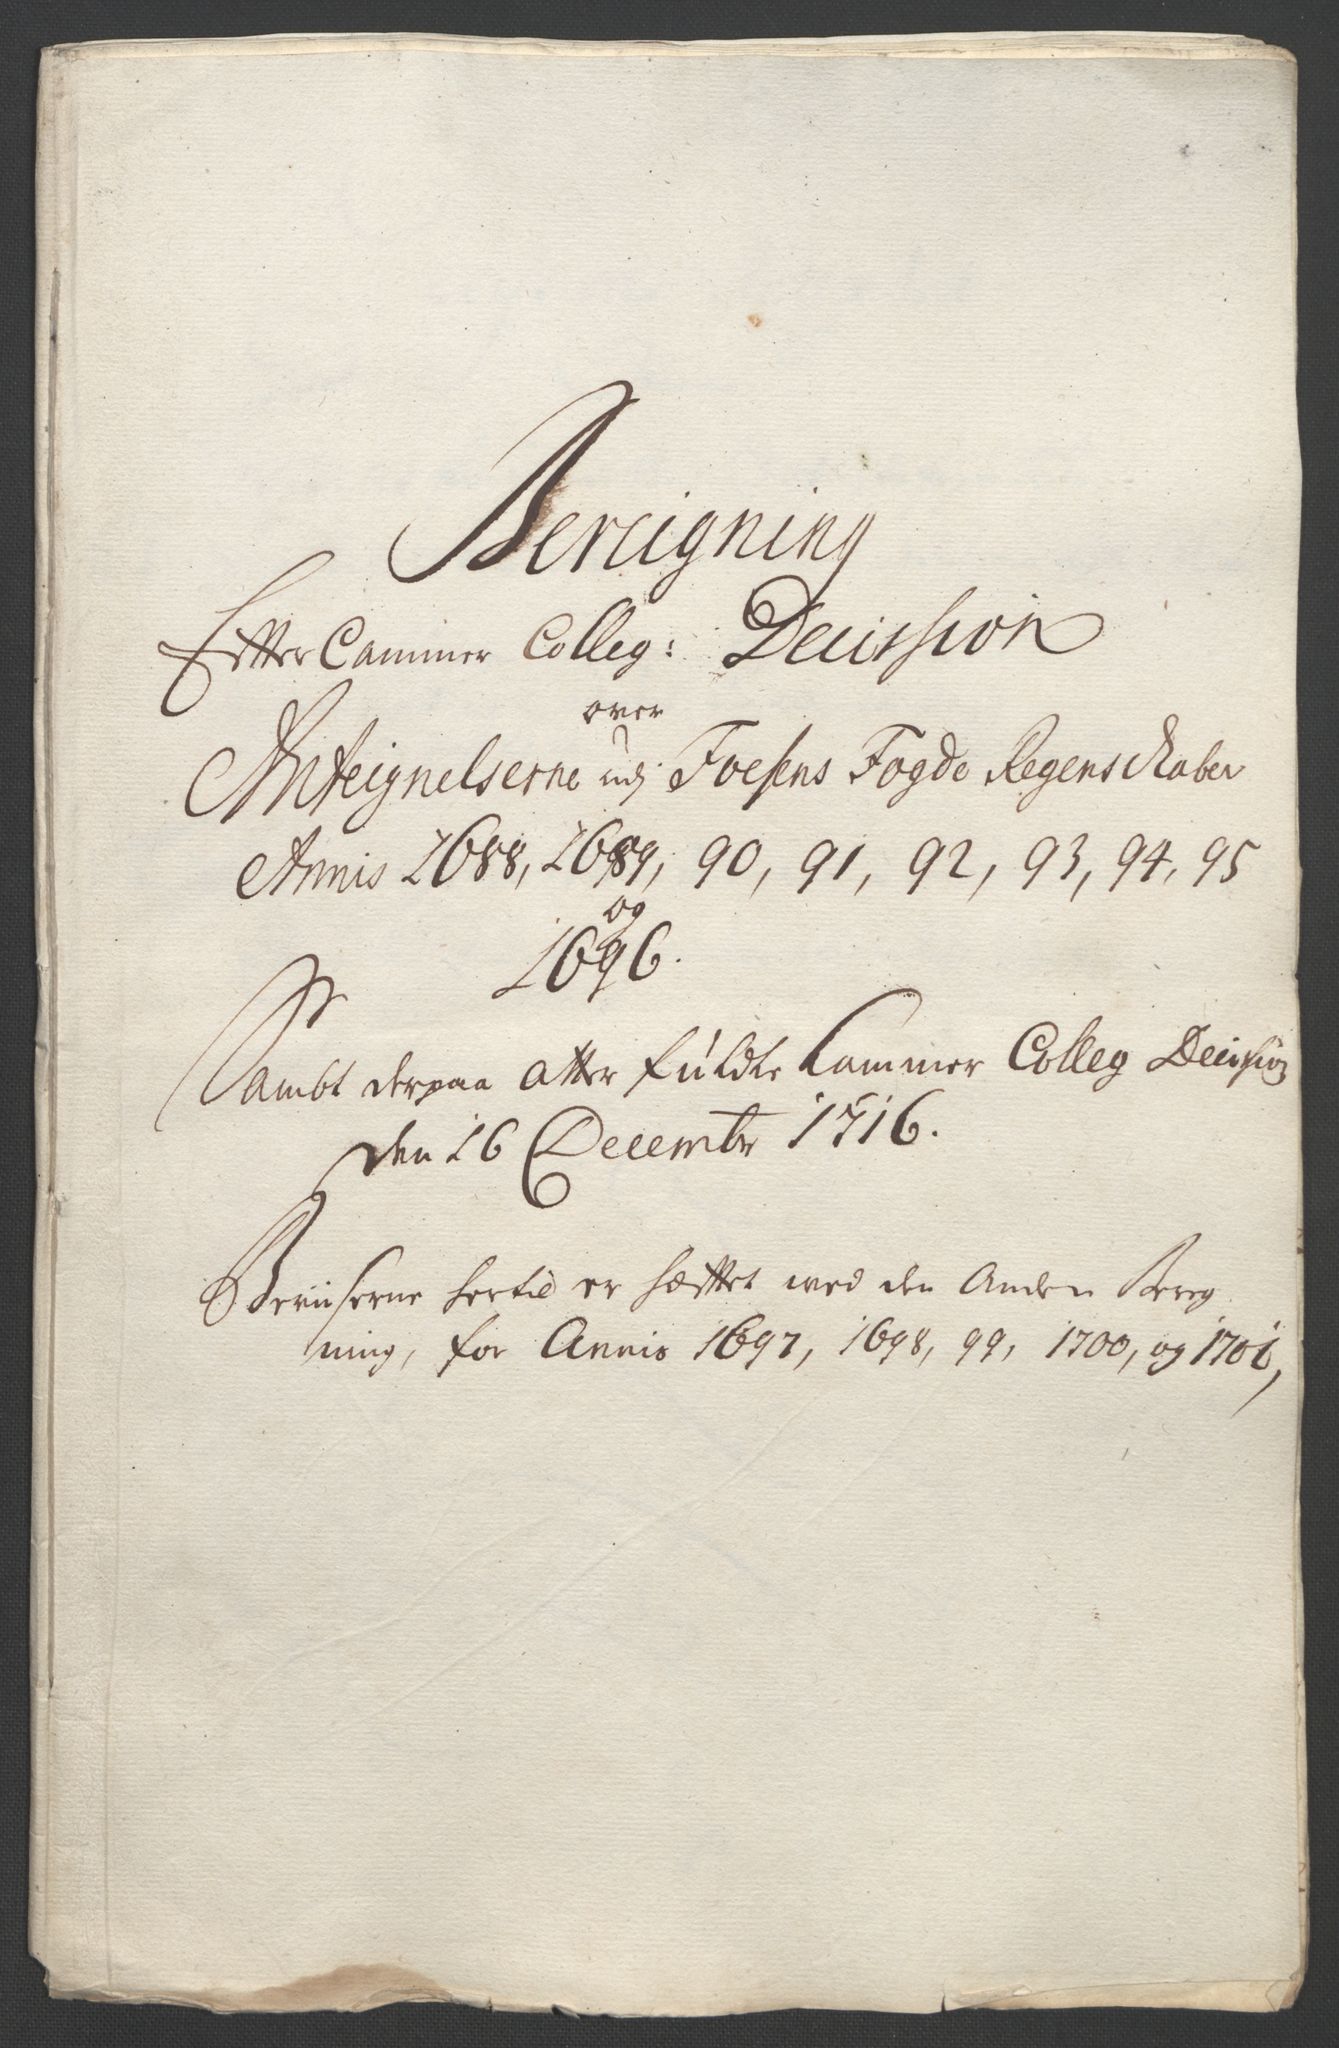 Bereigning
Efter Cammer Colleg: Decission
over
Anteignelserne udj Foesens Fogde Regenskaber
Annis 1688, 1689, 90, 91, 92, 93, 94, 95
og
1696.
Sambt derpaa atter fuldte Cammer Colleg Decission
den 16 Decembr 1716.
Beviiserne hertil er hæfftet ved den Anden Bereg
ning, for Annis 1697, 1698, 99, 1700, og 1701,